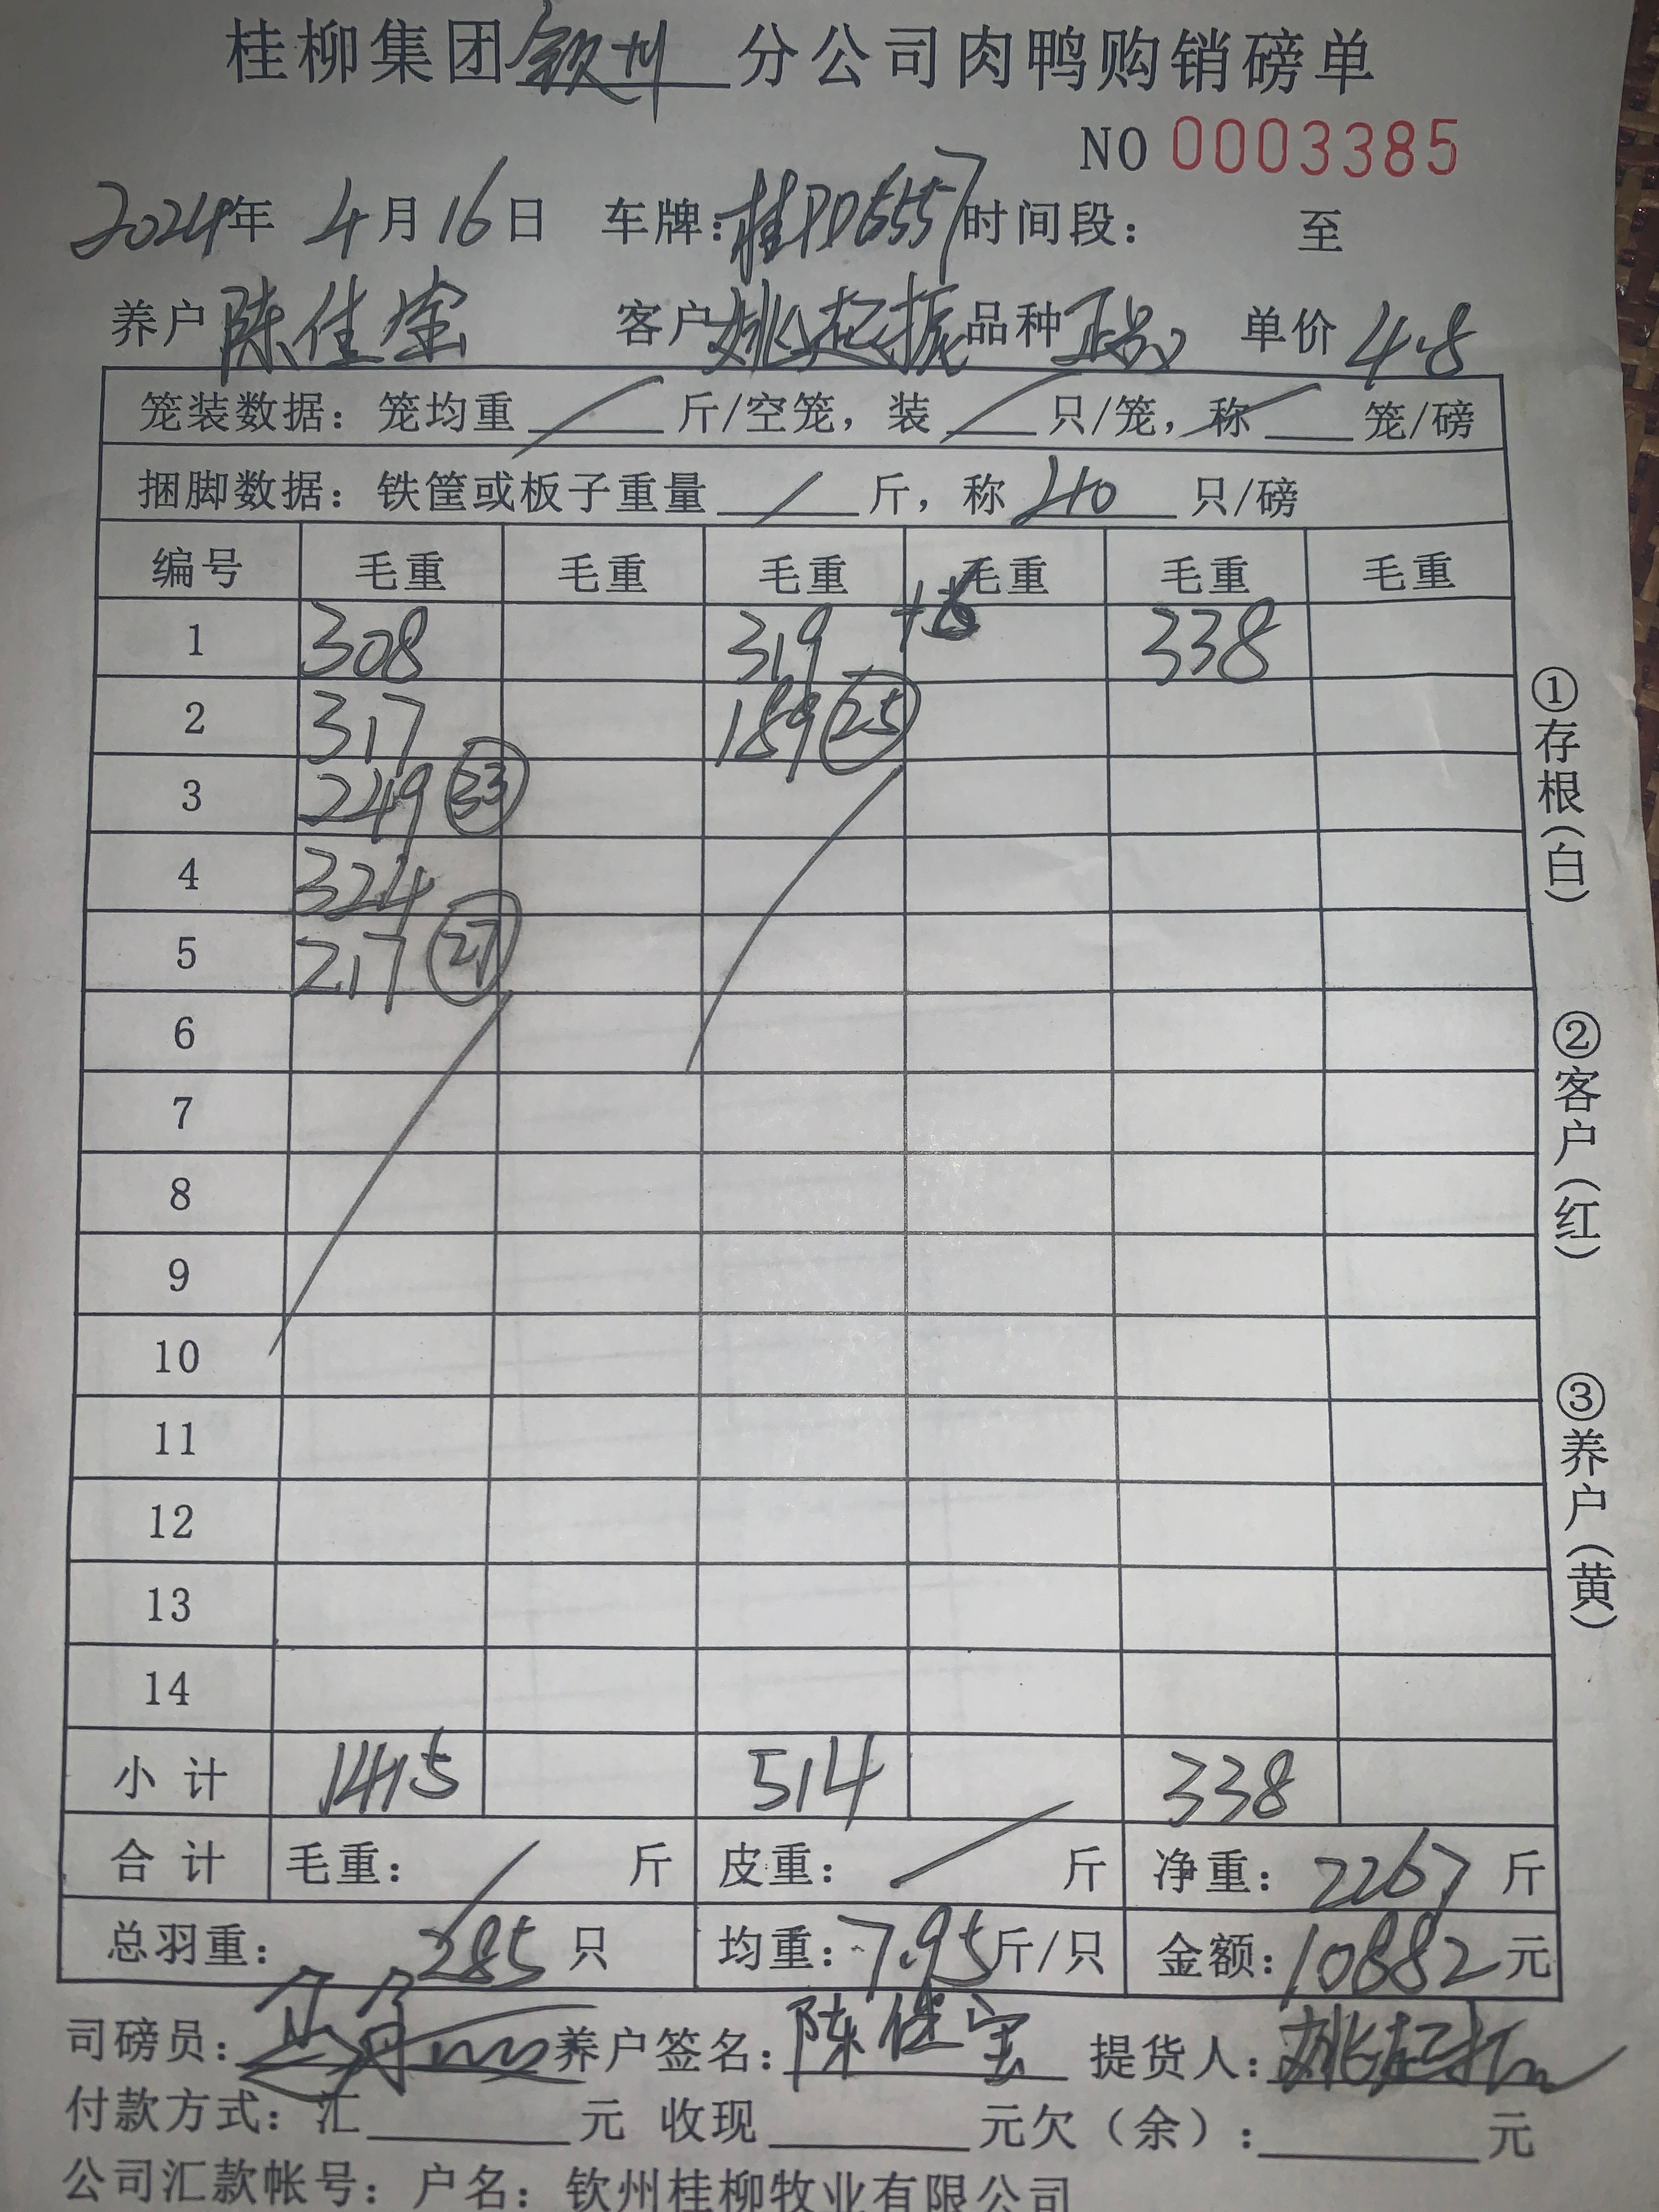 桂柳集团钦州分公司肉鸭购销磅单
NO 0003385
2024年 4月16日 车牌:桂PD6557 时间段: 至
养户 陈佳宝 客户 姚起振 品种 正品 单价 4.8
笼装数据: 笼均重 斤/空笼, 装 只/笼, 称 笼/磅
捆脚数据: 铁筐或板子重量 斤, 称 40 只/磅
编号 毛重 毛重 毛重 毛重 毛重 毛重
1 308 319 +6 338
2 317 189 (25)
3 249 (33)
4 324
5 217 (27)
6
7
8
9
10
11
12
13
14
小计 1415 514 338
合计 毛重: 斤 皮重: 斤 净重: 2267 斤
总羽重: 285 只 均重: 7.95 斤/只 金额: 10882 元
司磅员: 养户签名: 陈佳宝 提货人: 姚起振
付款方式: 汇 元 收现 元欠(余): 元
公司汇款帐号: 户名: 钦州桂柳牧业有限公司
①存根(白)
②客户(红)
③养户(黄)